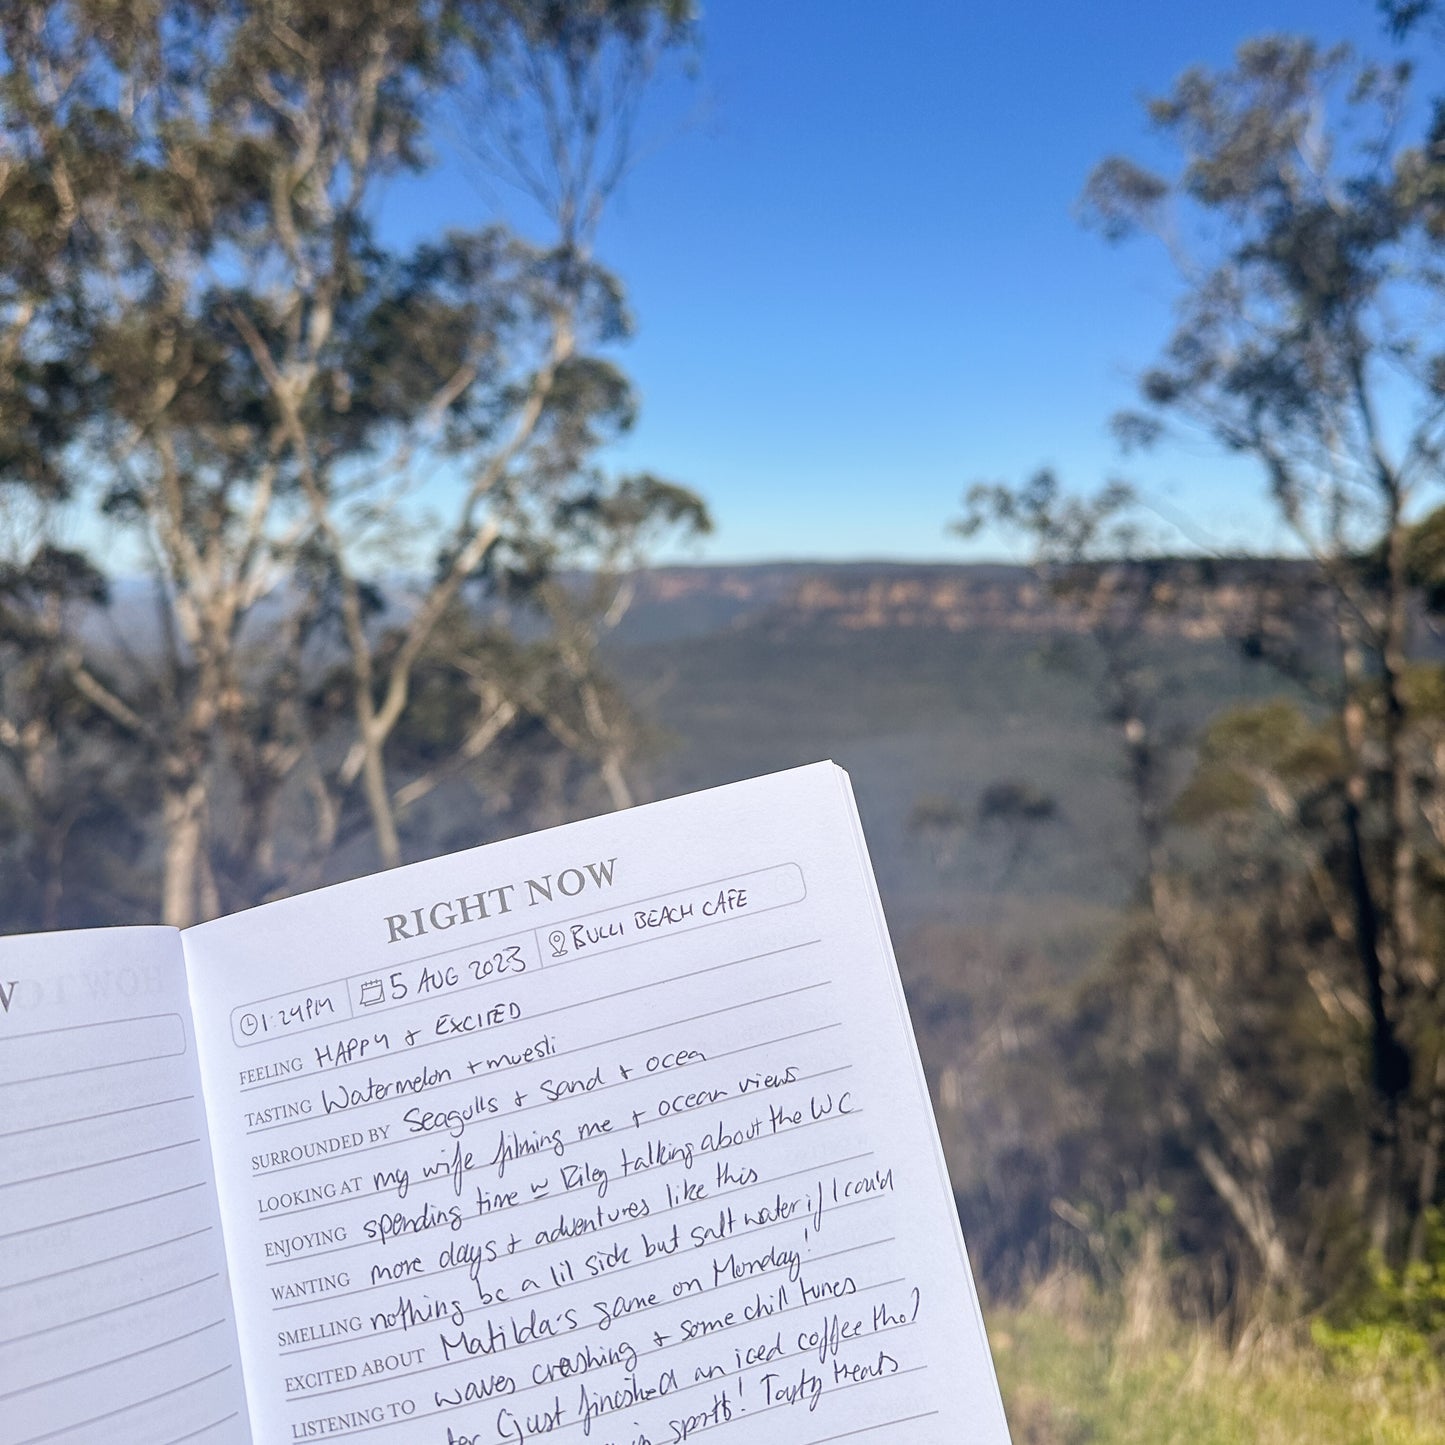 W
RIGHT NOW
1:24PM 5 AUG 2023 BULLI BEACH CAFE
FEELING HAPPY + EXCITED
TASTING Watermelon + muesli
SURROUNDED BY Seagulls + Sand + ocea
LOOKING AT my wife filming me + ocean views
ENJOYING spending time w Riley talking about the WC
WANTING more days + adventures like this
SMELLING nothing bc a lil sick but salt water if I could
EXCITED ABOUT Matilda's game on Monday!
LISTENING TO waves crashing + some chill tunes
(just finished an iced coffee tho)
in sports! Tasty treats